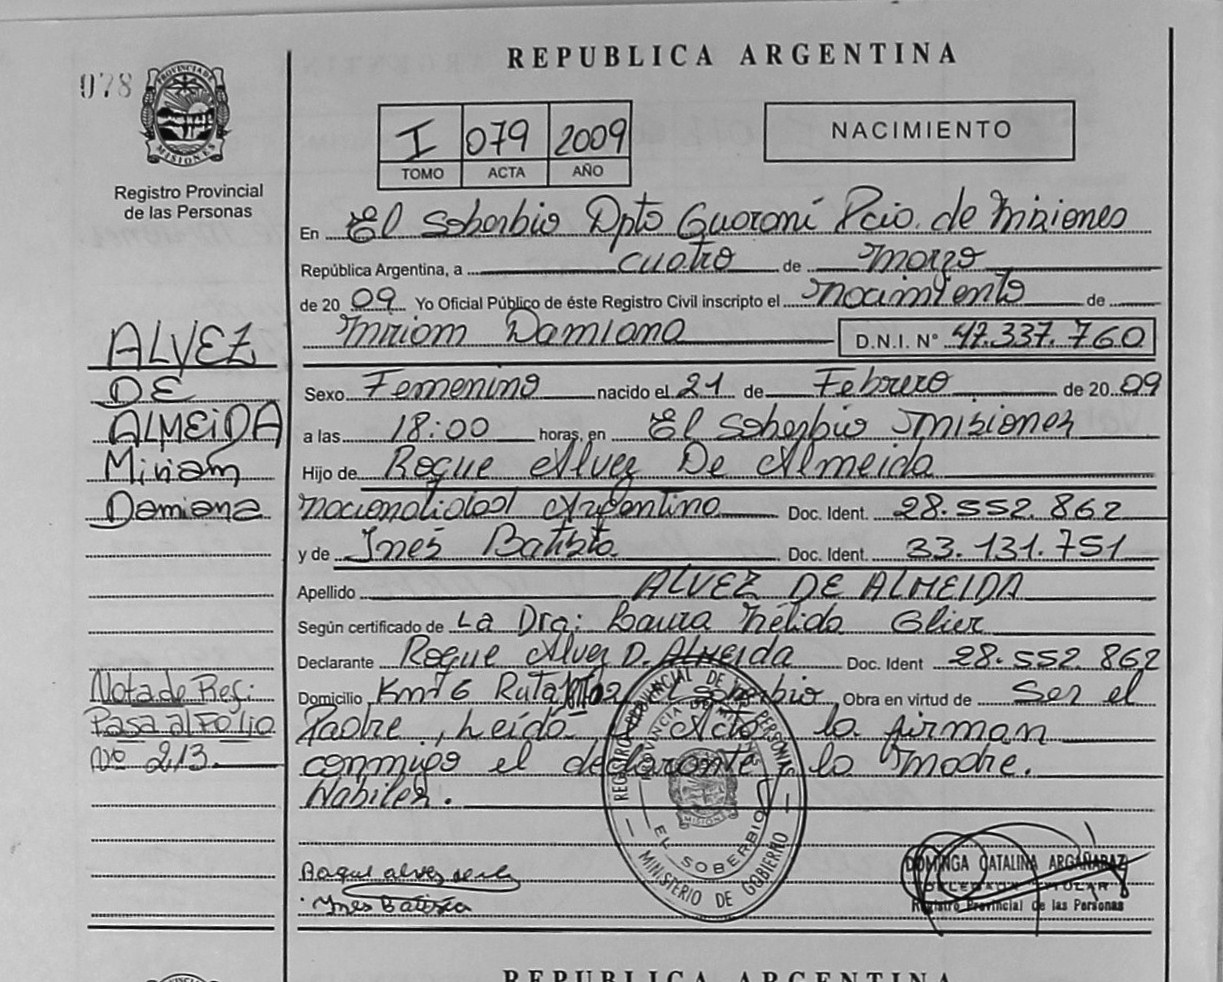 REPUBLICA ARGENTINA
078
PROVINCIA DE MISIONES
Registro Provincial
de las Personas
I 079 2009
TOMO ACTA AÑO
NACIMIENTO
En El Soberbio Dpto Guaraní Pcia. de Misiones
República Argentina, a cuatro de Marzo
de 20 09 Yo Oficial Público de éste Registro Civil inscripto el nacimiento de
Miriam Damiana D.N.I. N° 47.337.760
Sexo Femenino nacido el 21 de Febrero de 20 09
a las 18:00 horas, en El Soberbio Misiones
Hijo de Roque Alvez De Almeida
nacionalidad Argentina Doc. Ident. 28.552.862
y de Inés Batista Doc. Ident. 33.131.751
Apellido ALVEZ DE ALMEIDA
Según certificado de La Dra: Laura Nélida Glier
Declarante Roque Alvez D. Almeida Doc. Ident 28.552.862
Domicilio Km 6 Ruta El Soberbio Obra en virtud de Ser el
Padre, Leída el Acta la firman
conmigo el declarante y la Madre.
Habiles.
ALVEZ
DE
ALMEIDA
Miriam
Damiana
Nota de Ref:
Pasa al Folio
nº 213.
REGISTRO PROVINCIAL DE LAS PERSONAS
PROVINCIA DE MISIONES
MISIONES
EL SOBERBIO
MINISTERIO DE GOBIERNO
Ynes Batista
DOMINGA CATALINA ARGAÑARAZ
DELEGADA TITULAR
Registro Provincial de las Personas
REPUBLICA ARGENTINA